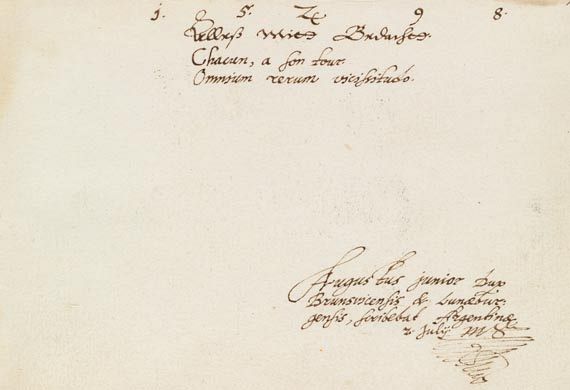 1. 5. 9 8.
Alleß Mitt Bedacht.
Chacun, a son tour.
Omnium rerum vicissitudo.
Augustus junior Dux
Brunsvicensis & Lunæbur-
gensis, scribebat Argentinæ
2 July